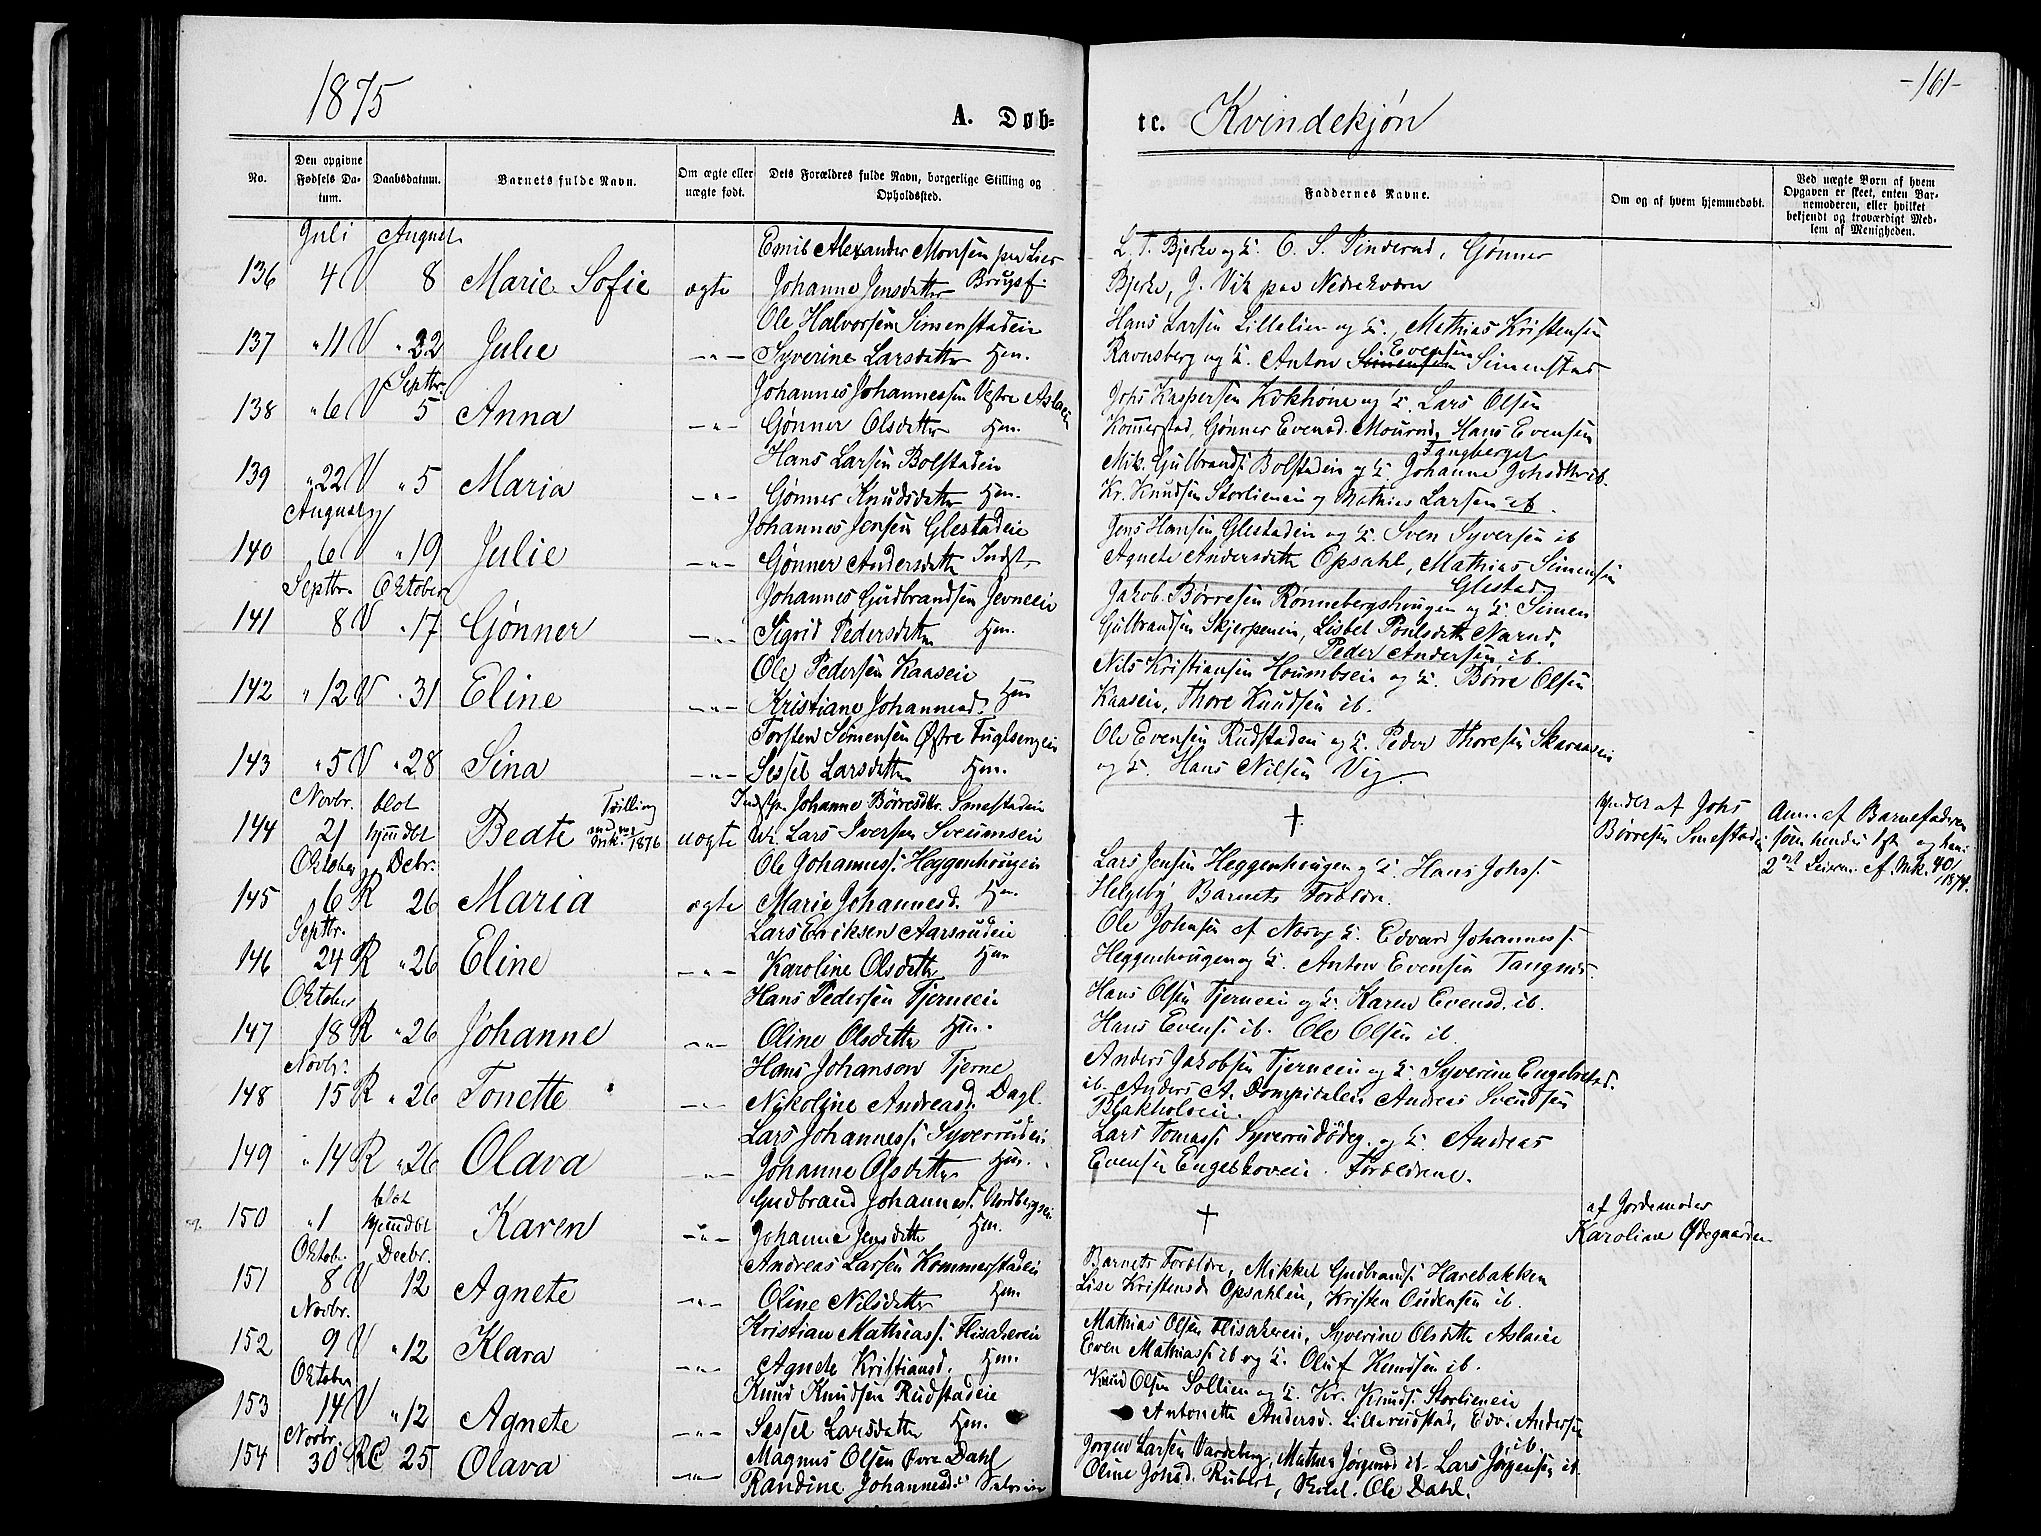 1875
A. Døb=
te. Kvindekjøn
-161-
No.
Den opgivne Fødsels Datum.
Daabsdatum.
Barnets fulde Navn.
Om ægte eller uægte født.
Dets Forældres fulde Navn, borgerlige Stilling og Opholdssted.
Faddernes Navne.
Om og af hvem hjemmedøbt.
Ved uægte Børn af hvem Opgaven er skeet, enten Barnemoderen, eller hvilket bekjendt og troværdigt Medlem af Menigheden.
Juli August
136 4 V 8 Marie Sofie ægte
Emil Alexander Monsen paa Lier
Johanne Jensdatter Brugsf.
L. T. Bjerke og O. S. Pinderud, Gønner
Bjerke, J. Vik paa Nedrekværn
137 " 11 V " 22 Julie -"-
Ole Halvorsen Simenstadeie
Syverine Larsdatter Hm.
Hans Larsen Lillelien og Mathias Kristensen
Ravnsberg og Anton Simensen Evensen Simenstad
Septbr.
138 " 6 V 5 Anna -"-
Johannes Johannessen Vestre Aslaeie
Gønner Olsdatter Hm.
Johs Kaspersen Lars Olsen
Kommerstad, Gønner Evensd. Mourud, Hans Evensen
Fangberget
139 " 22 V " 5 Maria -"-
Hans Larsen Bolstadeie
Gønner Knudsdatter Hm.
Mik. Gulbrands. Bolstadeie og Johanne Johsdtr ib.
Kr. Knudsen Storlieneie og Mathias Larsen ib.
August
140 6 V " 19 Julie -"-
Johannes Jensen Glestadeie
Gønner Andersdatter Indst.
Jens Hansen Glestadeie og Sven Syversen ib
Agnete Andersdatter Opsahl, Mathias Simensen
Glestad
Septbr. Oktober
141 8 V " 17 Gønner -"-
Johannes Gudbrandsen Jevneeie
Sigrid Pedersdatter Hm.
Jakob Børresen Rønnebergshougen og Simen
Gulbrandsen Skjerpeneie, Lisbet Poulsdatter Narud,
Peder Andersen ib.
142 " 12 V " 31 Eline -"-
Ole Pedersen Kaaseie
Kristiane Johannesd. Hm
Nils Kristiansen Houmbseie og Børre Olsen
Kaaseie, Thore Knudsen ib.
143 " 5 V " 28 Sina -"-
Torsten Simensen Østre Fuglsengeie
Sessel Larsdatter Hm.
Ole Evensen Rudstadeie og Peder Thoresen Skaraaseie
og Hans Nilsen Vig.
Novbr. blot
144 21 hjmdbt Beate Tvilling 1876 uægte
Johanne Børresdtr. Smestadeie
Lars Iversen Sveumseie
†
af Johs
Børresen Smestadeie
Anm. af Barnefaderen
som hendes 1st og hans
2den Leierm. cf. Mk. 40/1874.
Oktober Debr.
145 6 R 26 Maria ægte
Ole Johanness. Heggenhougen
Marie Johannesd. Hm.
Lars Jensen Heggenhougen og Hans Johs.
Helgeby Barnets Forældre.
Septbr.
146 24 R " 26 Eline -"-
Lars Eriksen Aarsrudeie
Karoline Olsdatter Hm
Ole Johnsen af Edvard Johanness.
Heggenhougen og Anton Evensen Tangnes.
Oktober
147 18 R " 26 Johanne -"-
Hans Pedersen Tjerneeie
Oline Olsdatter Hm.
Hans Olsen Tjerneeie og Karen Evensd. ib.
Hans Evens. ib. Ole Olsen ib.
Novbr.
148 15 R " 26 Tonette -"-
Hans Johanson Tjerne
Nikoline Andreasd. Dagl.
Anders Jakobsen Tjerneeie og Syverine Engebretsd.
ib. Anders A. Dompidalen Andreas Svendsen
Blakholseie.
149 " 14 R " 26 Olava -"-
Lars Johanness. Syverrudeie
Johanne Olsdatter Hm.
Lars Tomass. Syverrudødeg. og Andreas
Evensen Engelhoveie. Forældrene.
blot
150 " 1 hjmdbt Karen -"-
Gudbrand Johanness. Nordbergseie
Johanne Jensdatter Hm.
†
af Jordemoder
Karoline Ødegaarden
Oktobr. Decbr.
151 8 V 12 Agnete -"-
Andreas Larsen Kommerstadeie
Oline Nilsdatter Hm
Barnets Forældre, Mikkel Gudbrands. Harebakken
Lise Kristensd. Opsahleie, Kristen Oudensen ib.
Novbr.
152 9 V " 12 Klara -"-
Kristian Mathiass. Flisakereie
Agnete Kristiansd. Hm.
Mathias Olsen Flisakereie, Syverine Olsdatter Aslaeie
Even Mathiass. ib og Oluf Knudsen ib.
Oktober
153 14 V " 12 Agnete -"-
Knud Knudsen Rudstadeie
Sessel Larsdatter Hm.
Knud Olsen Sollien og Kr. Knuds. Storlieneie
Antonette Andersd. Lillerudstad, Edv. Andersen
ib.
Novbr.
154 30 R 25 Olava -"-
Magnus Olsen Øvre Dahl
Randine Johannesd.
Jørgen Larsen Vardeberg, Mathea Jørgensd ib. Lars Jørgensen ib
Oline Johsd. Rubert, Ole Dahl.